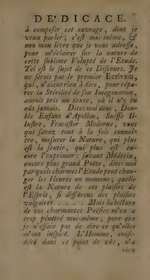 DE'DICACE.
à composer cet ouvrage, dont je
veux parler; c'est moi-même, &
non mon livre que je vous adresse,
pour m'éclairer sur la nature de
cette sublime Volupté de l'Etude.
Tel est le sujet de ce Discours. Je
ne serois pas le premier Ecrivain,
qui, n'aiant rien à dire, pour
réparer la Stérilité de son Imagination,
auroit pris un texte, où il n'y en
eut jamais. Dites-moi donc, Double
Enfant d'Apollon, Suisse Illustre,
Fracastor Moderne, vous
qui savez tout à la fois connoître,
mesurer la Nature, qui plus
est la sentir, qui plus est encore
l'exprimer: savant Médecin,
encore plus grand Poëte, dites-moi
par quels charmes l'Etude peut changer
les Heures en momens; quelle
est la Nature de ces plaisirs de
l'Esprit, si différens des plaisirs
vulgaires
de vos charmantes Poësies m'en a
trop pénétré moi-même, pour que
je n'essaie pas de dire ce qu'elles
m'ont inspiré. L'Homme, considéré
dans ce point de vue, n'a